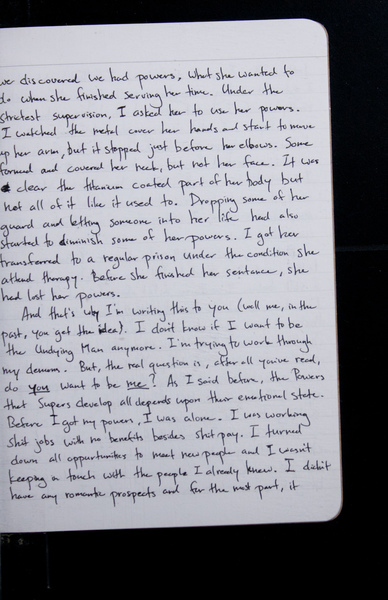 we discovered we had powers, what she wanted to
do when she finished serving her time. Under the
strictest supervision, I asked her to use her powers.
I watched the metal cover her hands and start to move
up her arm, but it stopped just before her elbows. Some
formed and covered her neck, but not her face. It was
clear the titanium coated part of her body but
not all of it like it used to. Dropping some of her
guard and letting someone into her life had also
started to diminish some of her powers. I got her
transferred to a regular prison under the condition she
attend therapy. Before she finished her sentence, she
had lost her powers.
And that's why I'm writing this to you (well me, in the
past, you get the idea). I don't know if I want to be
the Undying Man anymore. I'm trying to work through
my demons. But, the real question is, after all you've read,
do you want to be me? As I said before, the Powers
that Supers develop all depends upon their emotional state.
Before I got my powers, I was alone. I was working
shit jobs with no benefits besides shit pay. I turned
down all opportunities to meet new people and I wasn't
keeping in touch with the people I already knew. I didn't
have any romantic prospects and for the most part, it